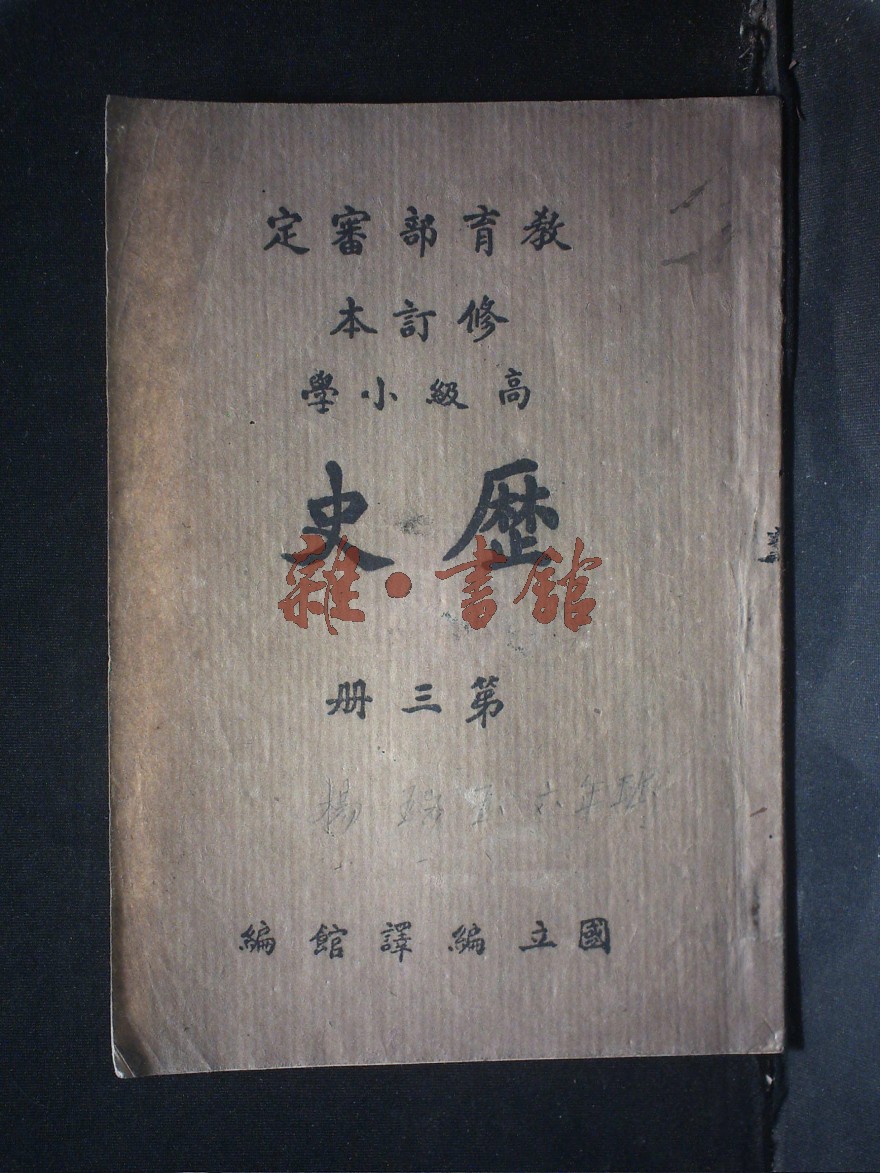 教育部審定
修訂本
高級小學
歷史
雜·書館
第三册
國立編譯館編